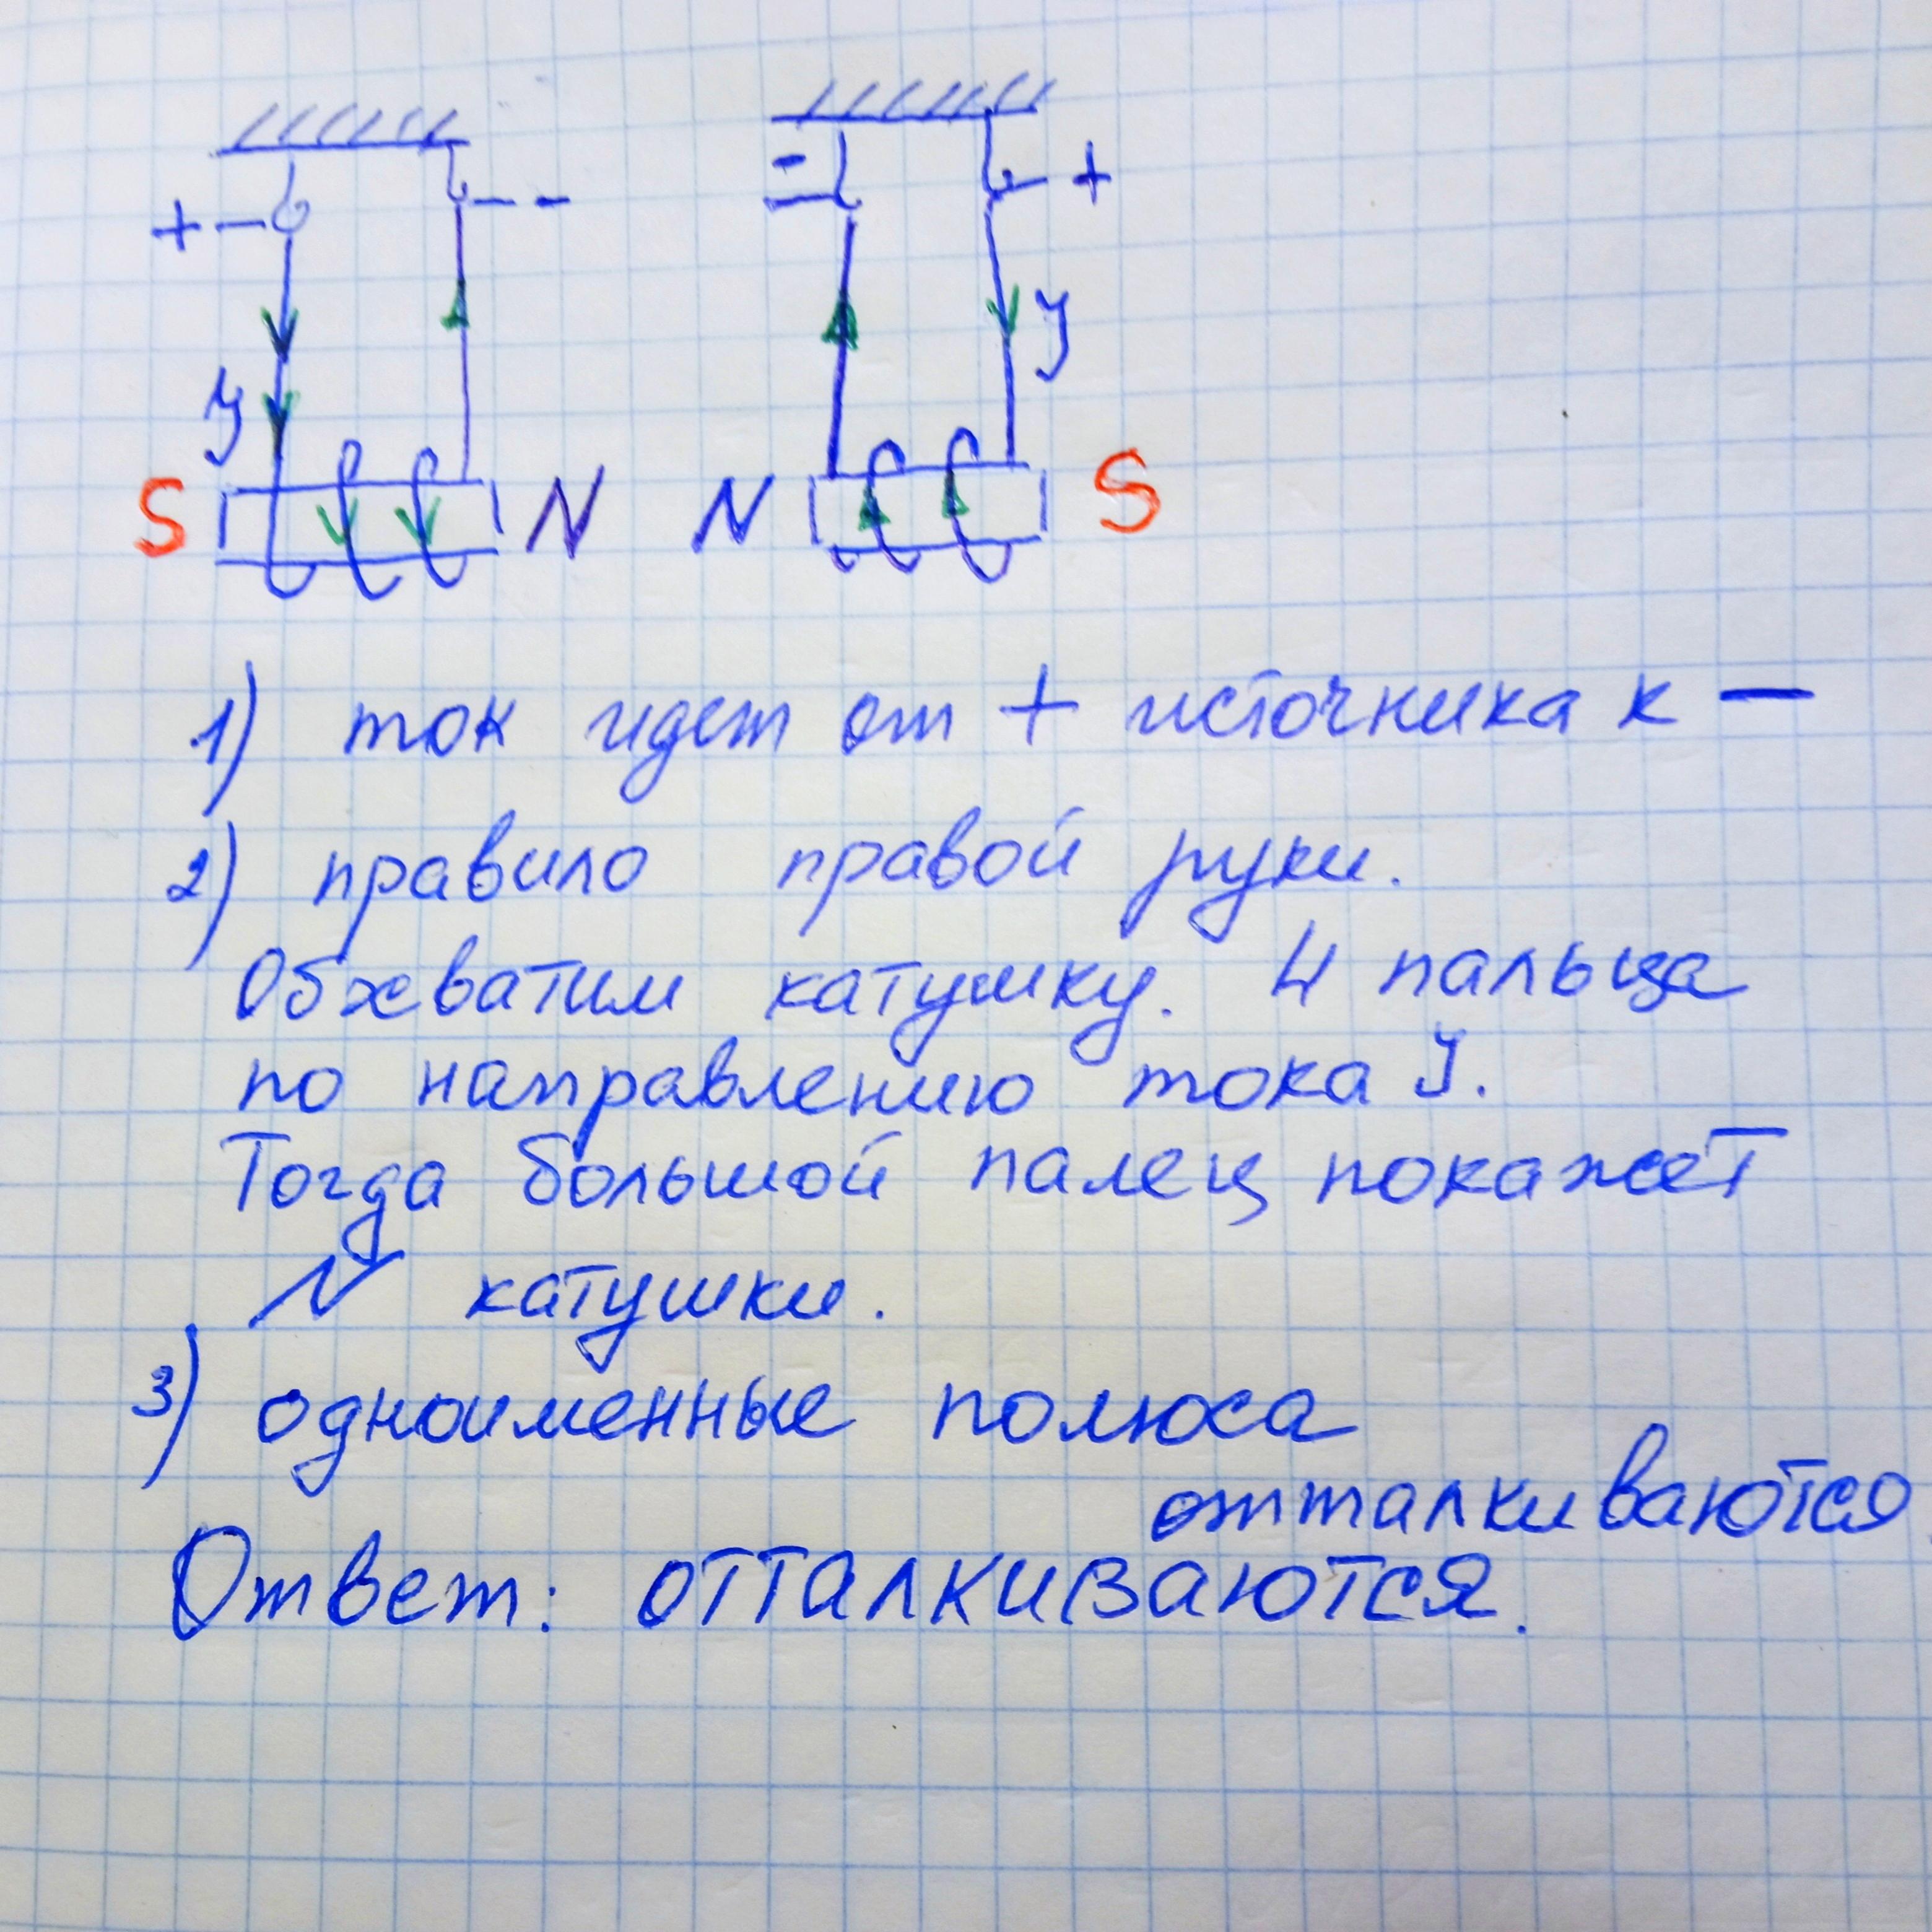 + - - +
У У
S N N S
1) ток идет от + источника к —
2) правило правой руки.
Обхватим катушку. 4 пальца
по направлению тока У.
Тогда большой палец покажет
N катушки.
3) одноименные полюса
отталкиваются
Ответ: отталкиваются.